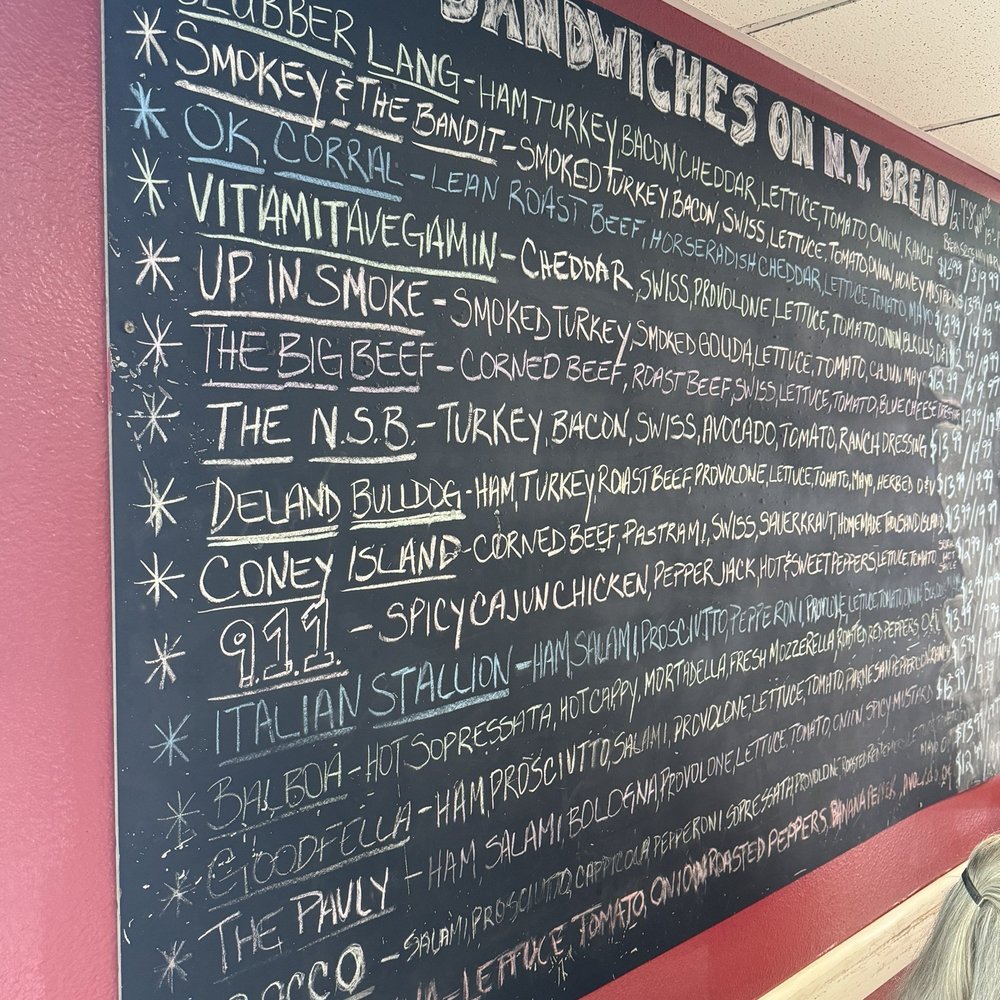 SANDWICHES ON N.Y. BREAD
CLUBBER LANG - HAM, TURKEY, BACON, CHEDDAR, LETTUCE, TOMATO, ONION, RANCH
SMOKEY & THE BANDIT - SMOKED TURKEY, BACON, SWISS, LETTUCE, TOMATO, ONION, HONEY MUSTARD
O.K. CORRIAL - LEAN ROAST BEEF, HORSERADISH CHEDDAR, LETTUCE, TOMATO MAYO
VITAMITAVEGAMIN - CHEDDAR, SWISS, PROVOLONE, LETTUCE, TOMATO, ONION, BLK OLIVES
UP IN SMOKE - SMOKED TURKEY, SMOKED GOUDA, LETTUCE, TOMATO, CAJUN MAYO
THE BIG BEEF - CORNED BEEF, ROAST BEEF, SWISS, LETTUCE, TOMATO, BLUE CHEESE
THE N.S.B. - TURKEY, BACON, SWISS, AVOCADO, TOMATO, RANCH DRESSING $13.99
DELAND BULLDOG - HAM, TURKEY, ROAST BEEF, PROVOLONE, LETTUCE, TOMATO, MAYO, HERBED O&V
CONEY ISLAND - CORNED BEEF, PASTRAMI, SWISS, SAUERKRAUT, HOMEMADE THOUSAND ISLAND
9.1.1. - SPICY CAJUN CHICKEN, PEPPER JACK, HOT & SWEET PEPPERS LETTUCE, TOMATO
ITALIAN STALLION - HAM, SALAMI, PROSCIUTTO, PEPPERONI, PROVOLONE, LETTUCE, TOMATO, ONION
BALBOA - HOT SOPRESSATA, HOT CAPPY, MORTADELLA, FRESH MOZZERELLA, ROASTED RED PEPPERS
GOODFELLA - HAM, PROSCIUTTO, SALAMI, PROVOLONE, LETTUCE, TOMATO, PARMESAN PEPPERCORN
THE PAULY - HAM SALAMI, BOLOGNA, PROVOLONE, LETTUCE, TOMATO, ONION, SPICY MUSTARD
ROCCO - SALAMI, PROSCIUTTO, CAPPICOLA, PEPPERONI, SOPRESSATA, PROVOLONE, ROASTED RED PEPPERS
LETTUCE, TOMATO, ONION, ROASTED PEPPERS, BANANA PEPPER